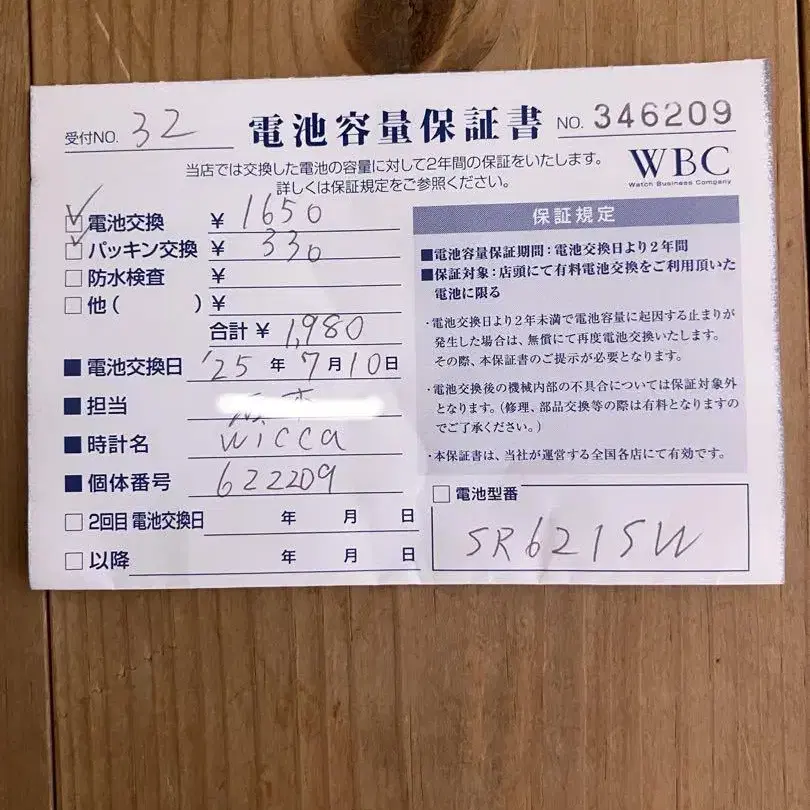 受付NO. 32
電池容量保証書
NO. 346209
当店では交換した電池の容量に対して2年間の保証をいたします。
詳しくは保証規定をご参照ください。
WBC
Watch Business Company
電池交換 ¥ 1650
パッキン交換 ¥ 330
防水検査 ¥
他( )¥
合計 ¥ 1,980
■電池交換日 '25年7月10日
■担当
■時計名 wicca
■個体番号 622209
□2回目 電池交換日 年 月 日
□以降 年 月 日
保証規定
■電池容量保証期間:電池交換日より2年間
■保証対象:店頭にて有料電池交換をご利用頂いた
電池に限る
・電池交換日より2年未満で電池容量に起因する止まりが
発生した場合は、無償にて再度電池交換いたします。
その際、本保証書のご提示が必要となります。
・電池交換後の機械内部の不具合については保証対象外
となります。(修理、部品交換等の際は有料となりますの
でご了承ください。)
・本保証書は、当社が運営する全国各店にて有効です。
□電池型番
SR621SW